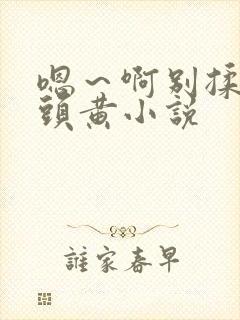 嗯～啊别揉
頭黄小說
誰家春早